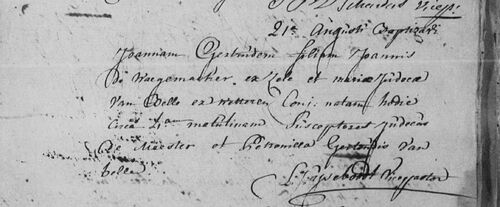 Vicep:
21a Augusti Baptizavi
Joannam Gertrudem filiam Joannis
De Waegemaeker ex Zele et mariæ Judocæ
Van Belle ex Wetteren Conj. natam hodie
Circa 4am matutinam Susceptores Judocus
De Meester et Petronilla Gertrudis Van
belle
Vicepastor